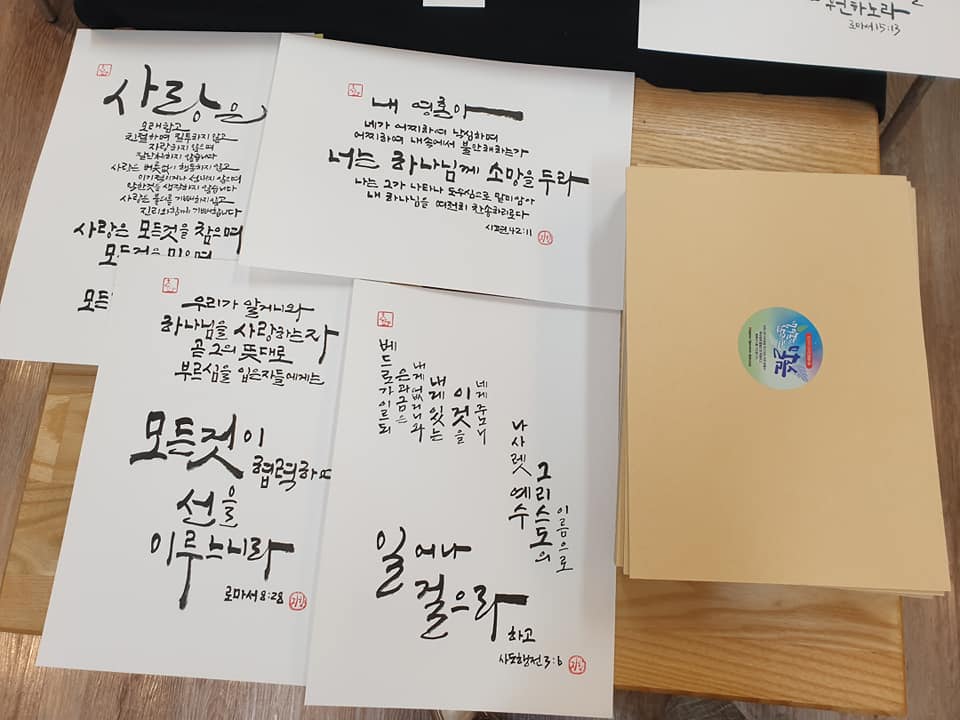 원하노라
로마서 15:13
사랑은
오래참고
친절하며 질투하지 않고
자랑하지 않으며
잘난체하지 않습니다
사랑은 버릇없이 행동하지 않고
이기적이거나 성내지 않으며
악한것을 생각하지 않습니다
사랑은 불의를 기뻐하지 않고
진리와 함께 기뻐합니다
사랑은 모든것을 참으며
모든것을 믿으며
모든
내 영혼아
네가 어찌하여 낙심하며
어찌하여 내속에서 불안해하는가
너는 하나님께 소망을 두라
나는 그가 나타나 도우심으로 말미암아
내 하나님을 여전히 찬송하리로다
시편 42:11
우리가 알거니와
하나님을 사랑하는 자
곧 그의 뜻대로
부르심을 입은 자들에게는
모든것이
협력하
선을
이루느니라
로마서 8:28
베드로가 이르되
은과 금은
내게 없거니와
내게 있는
이것을
네게 주노니
나사렛
예수
그리스도의
이름으로
일어나
걸으라
하고
사도행전 3:6